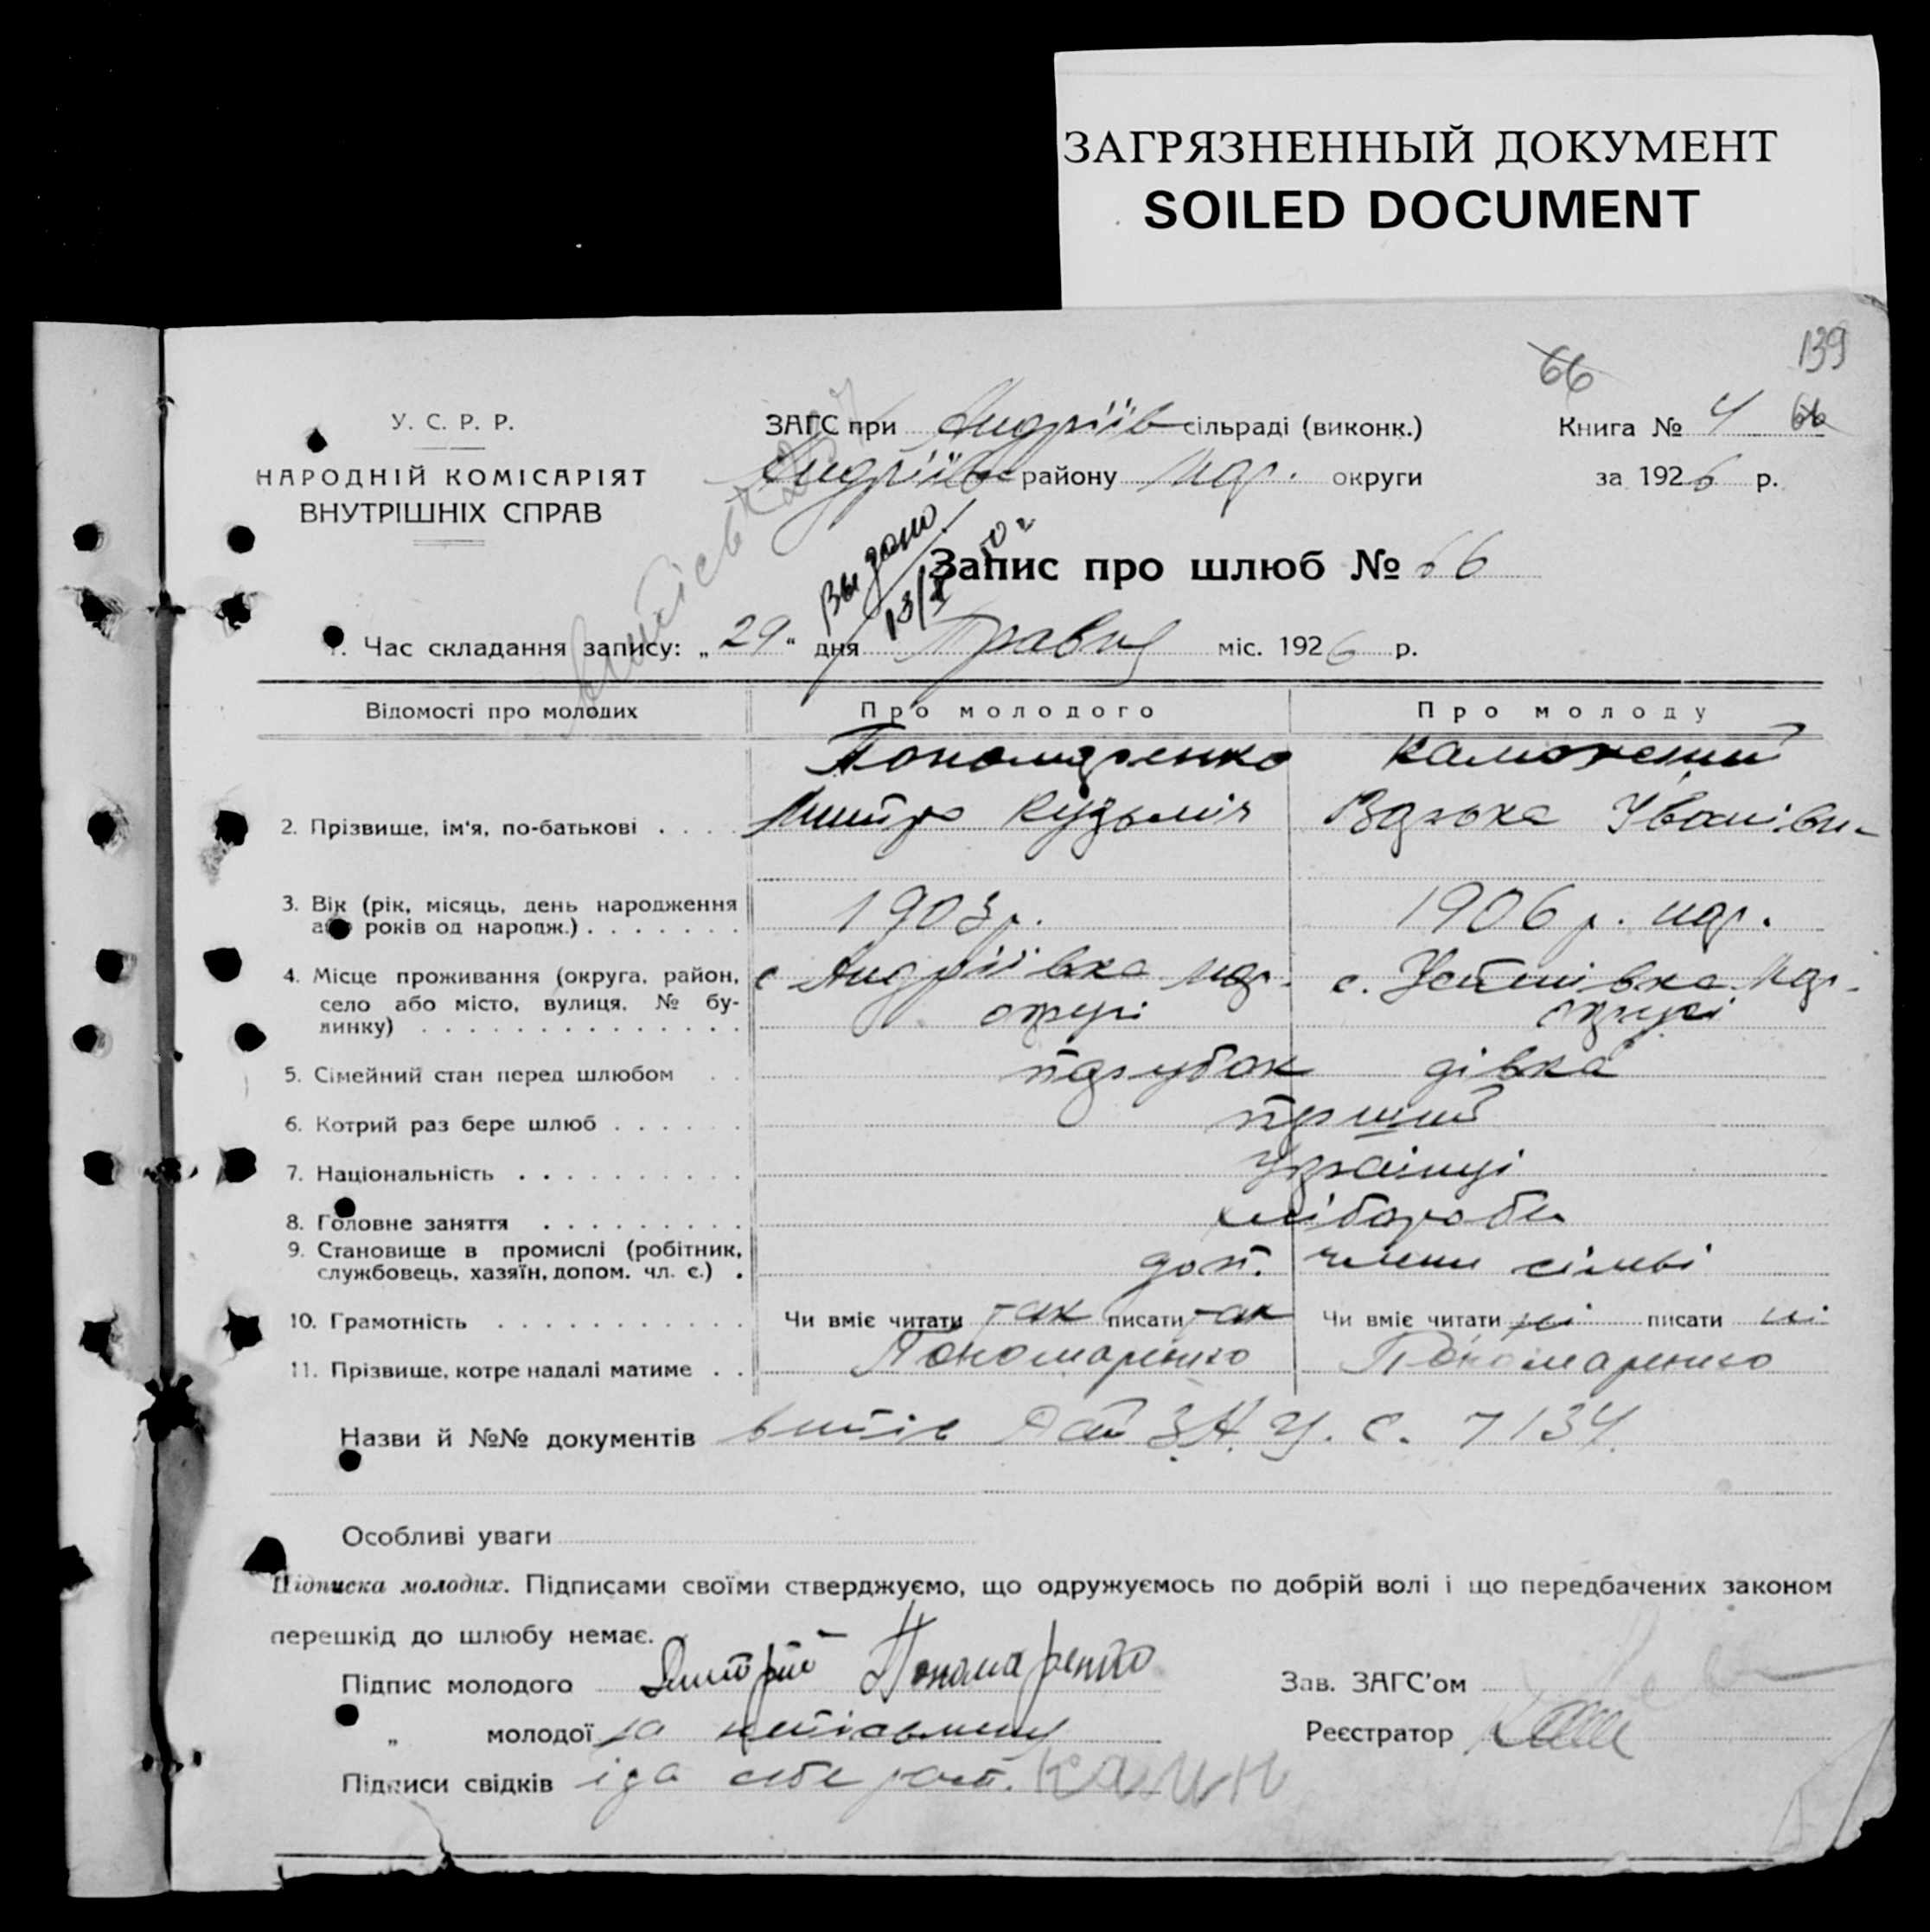 ЗАГРЯЗНЕННЫЙ ДОКУМЕНТ
SOILED DOCUMENT
139
66
У. С. Р. Р.
НАРОДНІЙ КОМІСАРІЯТ
ВНУТРІШНІХ СПРАВ
ЗАГС при Андріїв сільраді (виконк.)
Андріїв району Мар. округи
Книга № 4 66
за 1926 р.
Выдано
13/X 50 г
Запис про шлюб № 66
1. Час складання запису: „29“ дня Травня міс. 1926 р.
Відомості про молодих
Про молодого
Про молоду
Пономаренко
2. Прізвище, ім'я, по-батькові
Митро Кузьміч
Іванівн
3. Вік (рік, місяць, день народження
або років од народж.)
1903 р.
1906 р. нар.
4. Місце проживання (округа, район,
село або місто, вулиця, № бу-
динку)
с Андріївка Мар.
округи
с. Мар.
округи
5. Сімейний стан перед шлюбом
парубок дівка
6. Котрий раз бере шлюб
перший
7. Національність
Українці
8. Головне заняття
хлібороби
9. Становище в промислі (робітник,
службовець, хазяїн, допом. чл. с.)
доп. члени сімьі
10. Грамотність
Чи вміє читати так писати так
Чи вміє читати ні писати ні
11. Прізвище, котре надалі матиме
Пономаренко
Пономаренко
Назви й №№ документів витяг 7134
Особливі уваги
Підписка молодих. Підписами своїми стверджуємо, що одружуємось по добрій волі і що передбачених законом
перешкід до шлюбу немає.
Підпис молодого Дмитрій Пономаренко
Зав. ЗАГС'ом
„ молодої за
Реєстратор
Підписи свідків і за себе